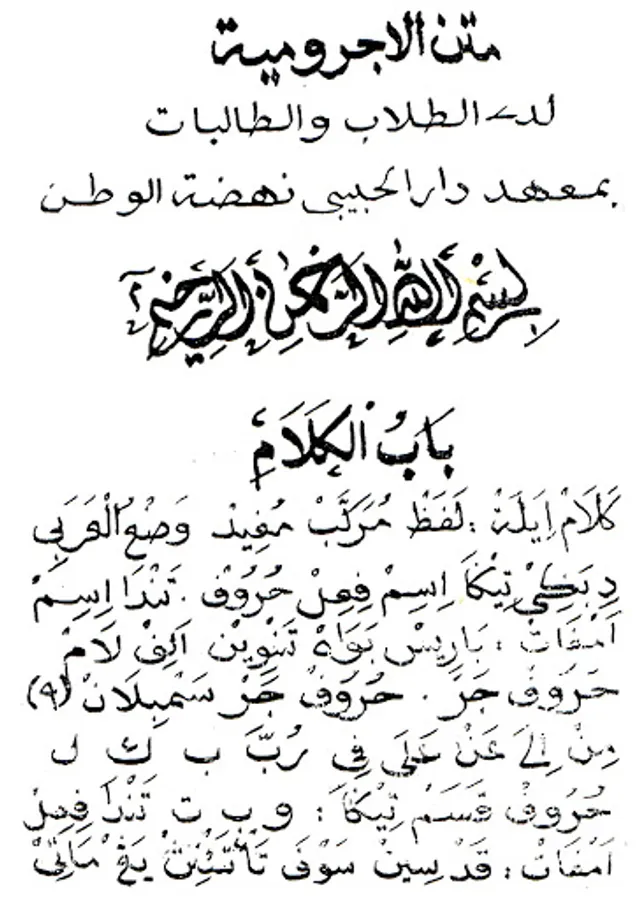 متن الاجرومية
لدى الطلاب والطالبات
بمعهد دار الحبيبي نهضة الوطن
بِسْمِ اللهِ الرَّحْمٰنِ الرَّحِيْمِ
بَابُ الْكَلَامِ
كَلَامْ اِيَلَهْ : لَفَظْ مُرَكَّبْ مُفِيْدْ وَضْعُ الْعَرَبِي
دِبَكِيْ تِيْكَا اِسِمْ فِعِلْ حُرُوْفْ . تَنْدَا اِسِمْ
اَمْفَاتْ : بَارِيْسْ بَوَاهْ تَنْوِيْن اَلِفْ لَامْ
حَرُوْفْ جَرْ . حُرُوْفْ جَرْ سَمْبِيلَانْ (٩)
مِنْ اِلَى عَنْ عَلَى فِي رُبَّ ب ك ل
حُرُوْفْ قَسَمْ تِيْكَا : و ب ت تَنْدَا فِعِلْ
اَمْفَاتْ : قَدْ سِيْن سَوْفَ تَأْتَأْنِيْثْ يَڠْ مَاتِيْ